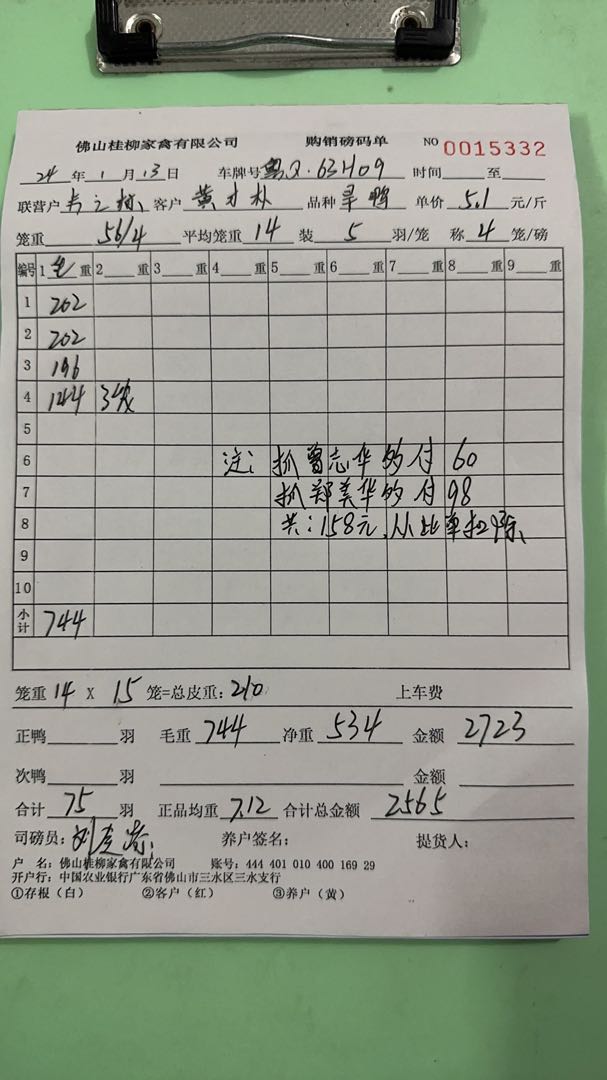 佛山桂柳家禽有限公司 购销磅码单 NO 0015332
24 年 1 月 13 日 车牌号 粤Q·63H09 时间 至
联营户 客户 黄才朴 品种 旱鸭 单价 5.1 元/斤
笼重 56/4 平均笼重 14 装 5 羽/笼 称 4 笼/磅
编号 1 毛 重 2 重 3 重 4 重 5 重 6 重 7 重 8 重 9 重
1 202
2 202
3 196
4 144 3笼
5
6 注: 抓曾志华的付 60
7 抓郑美华的付 98
8 共:158元,从此单扣除、
9
10
小计 744
笼重 14 X 15 笼=总皮重: 210 上车费
正鸭 羽 毛重 744 净重 534 金额 2723
次鸭 羽 金额
合计 75 羽 正品均重 7.12 合计总金额 2565
司磅员: 养户签名: 提货人:
户 名: 佛山桂柳家禽有限公司 账号: 444 401 010 400 169 29
开户行: 中国农业银行广东省佛山市三水区三水支行
①存根(白) ②客户(红) ③养户(黄)